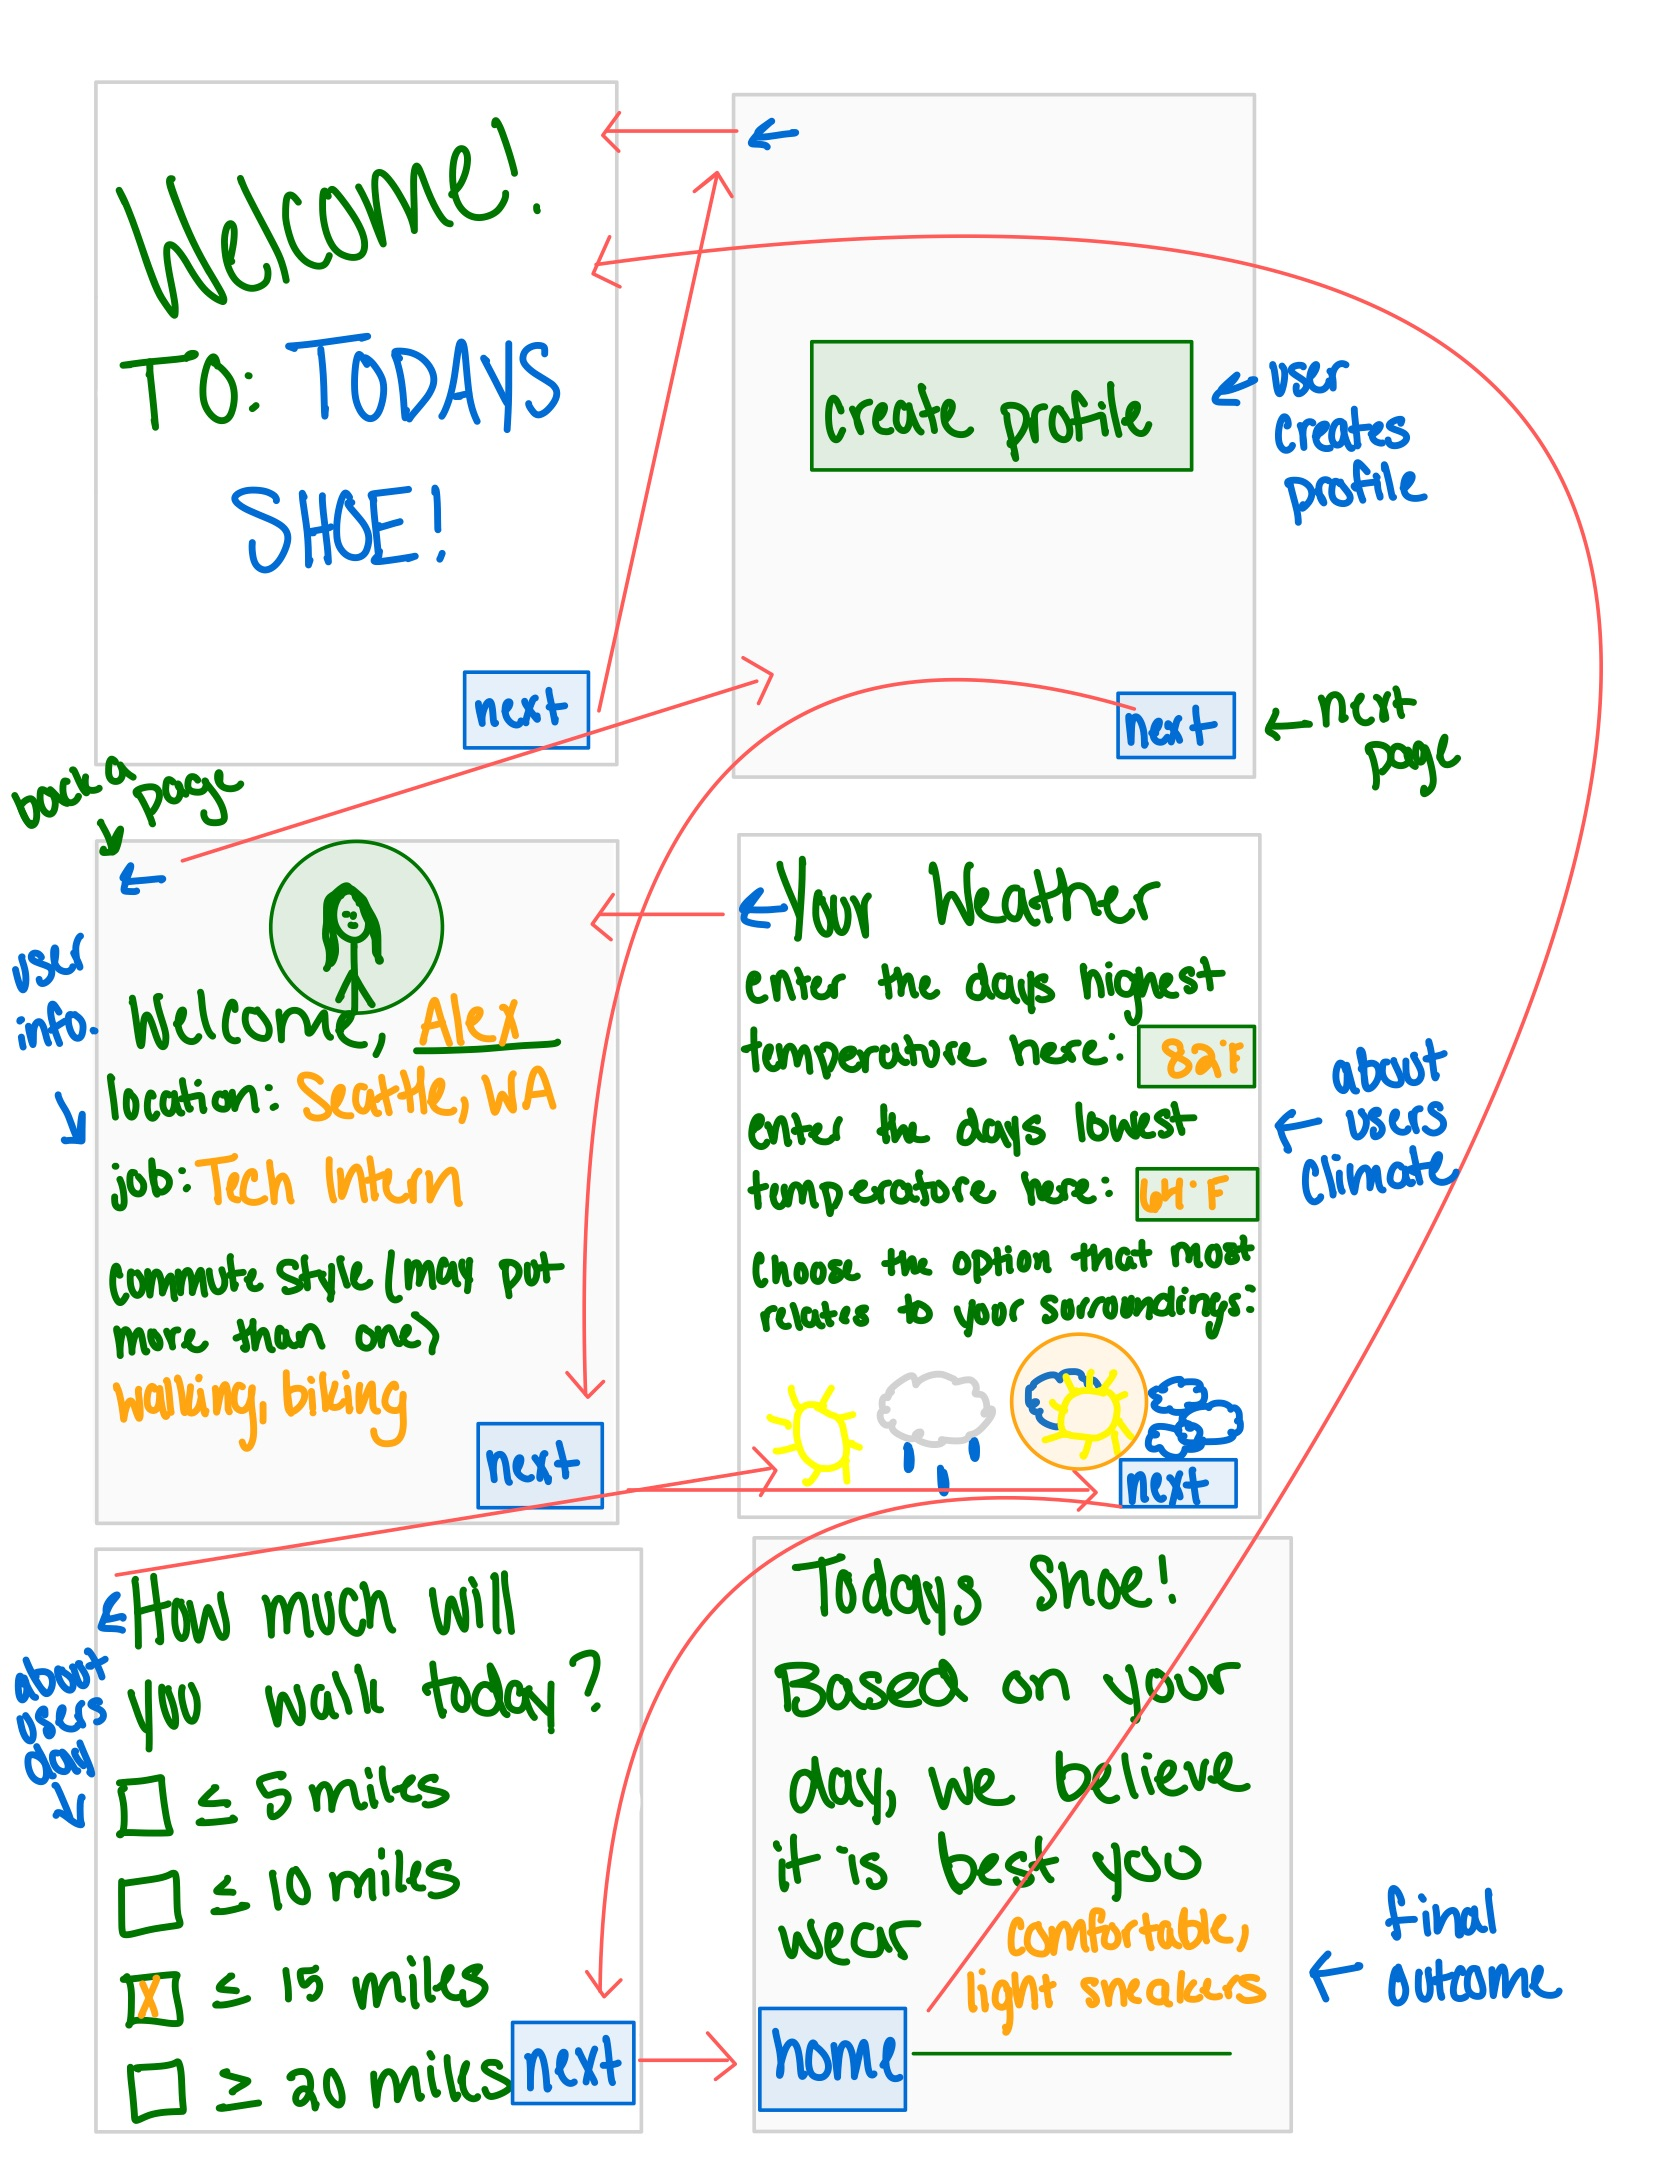 Welcome!
TO: TODAYS
SHOE!
next
create profile
user
creates
profile
next
next
page
back a
page
user
info.
Welcome, Alex
location: Seattle, WA
job: Tech Intern
commute style (may put
more than one)
walking, biking
next
Your Weather
enter the days highest
temperature here: 82°F
enter the days lowest
temperature here: 64°F
choose the option that most
relates to your surroundings:
next
about
users
climate
How much will
you walk today?
about
users
day
≤ 5 miles
≤ 10 miles
X ≤ 15 miles
≥ 20 miles
next
Todays Shoe!
Based on your
day, we believe
it is best you
wear comfortable,
light sneakers
home
final
outcome